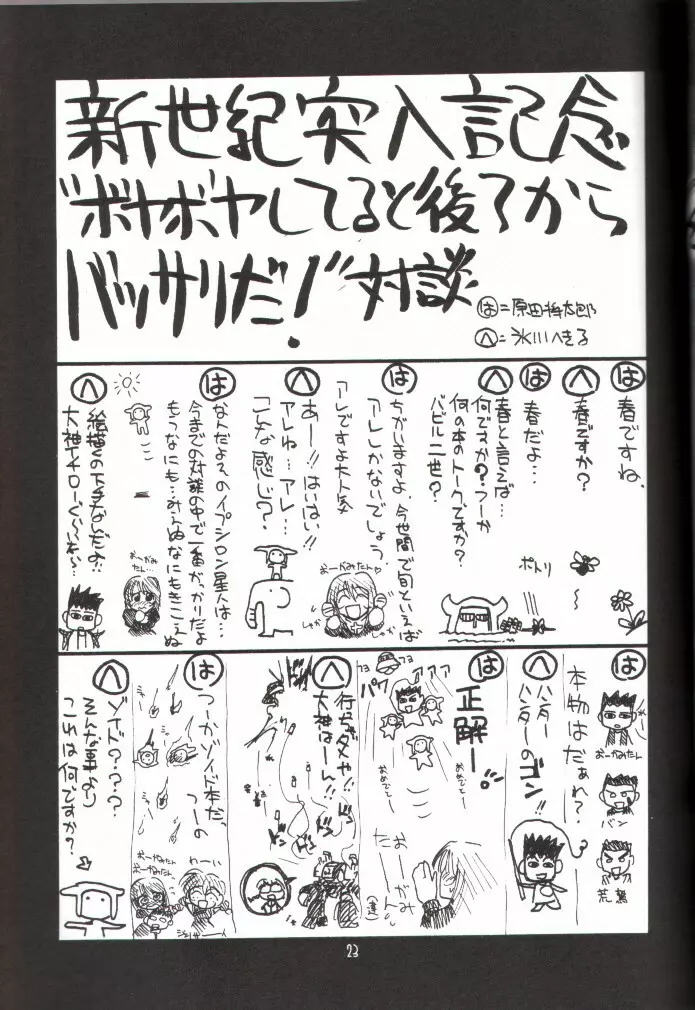 新世紀突入記念
"ボヤボヤしてると後ろから
バッサリだ!"対談
は=原田将太郎
へ=氷川へきる
は
春ですね、
へ
春ですか?
は
春だよ…
へ
春と言えば…
何ですか?つーか
何の本のトークですか?
バビル二世?
ポトリ
は
ちがいますよ、今世間で旬といえば
アレしかないでしょう、
アレですよ大人気
おーがみたん♡
へ
あー!!はいはい!!
アレね…アレ…
こんな感じ?
は
なんだよそのイプシロン星人は…
今までの対談の中で一番がっかりだよ
もうなにも…みえぬなにもきこえぬ
おーがみたん…
へ
絵描くの下手なんだよ!!
大神イチローぐらいを〜…
は
本物はだぁれ?
おーがみたん
バン
荒鷲
へ
ハンター
ハンターのゴン!!
は
正解ー。
パワァァァ
おめでとー
おめでとー
おーがみ
たんっ
へ
行っちゃダメや!!
大神はーん!!
ドン
ドン
は
つーかゾイド本だ、
つーの
おーがみたん
おーがみたん
わーい
へ
ゾイド???
そんな事より
これは何ですか?
23